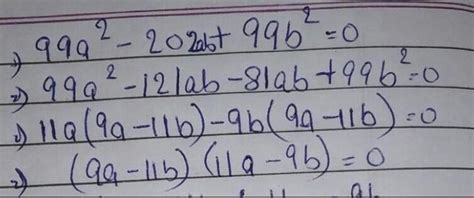 ⇒) 99a² - 202ab + 99b² = 0
⇒) 99a² - 121ab - 81ab + 99b² = 0
⇒) 11a(9a - 11b) - 9b(9a - 11b) = 0
⇒) (9a - 11b) (11a - 9b) = 0